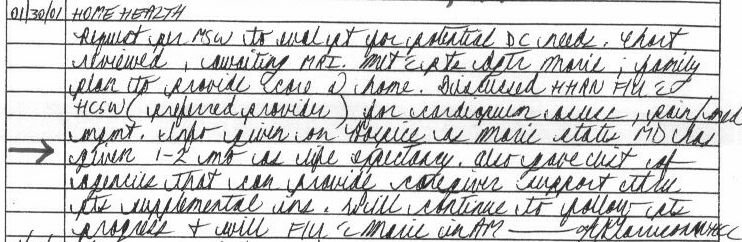 01/30/01 HOME HEALTH
Request per MSW to eval pt for potential DC needs. Chart
reviewed, awaiting MRI. Met c̄ pts dgtr Marie; family
plan to provide care @ home. Discussed HHRN F/U c̄
HCSW (preferred provider) for cardiopulm assess, pain/med
mgmt. Info given on Hospice as Marie states MD has
given 1-2 mo as life expectancy. Also gave list of
agencies that can provide caregiver support thru
pts supplemental ins. Will continue to follow pts
progress & will F/U c̄ Marie in AM